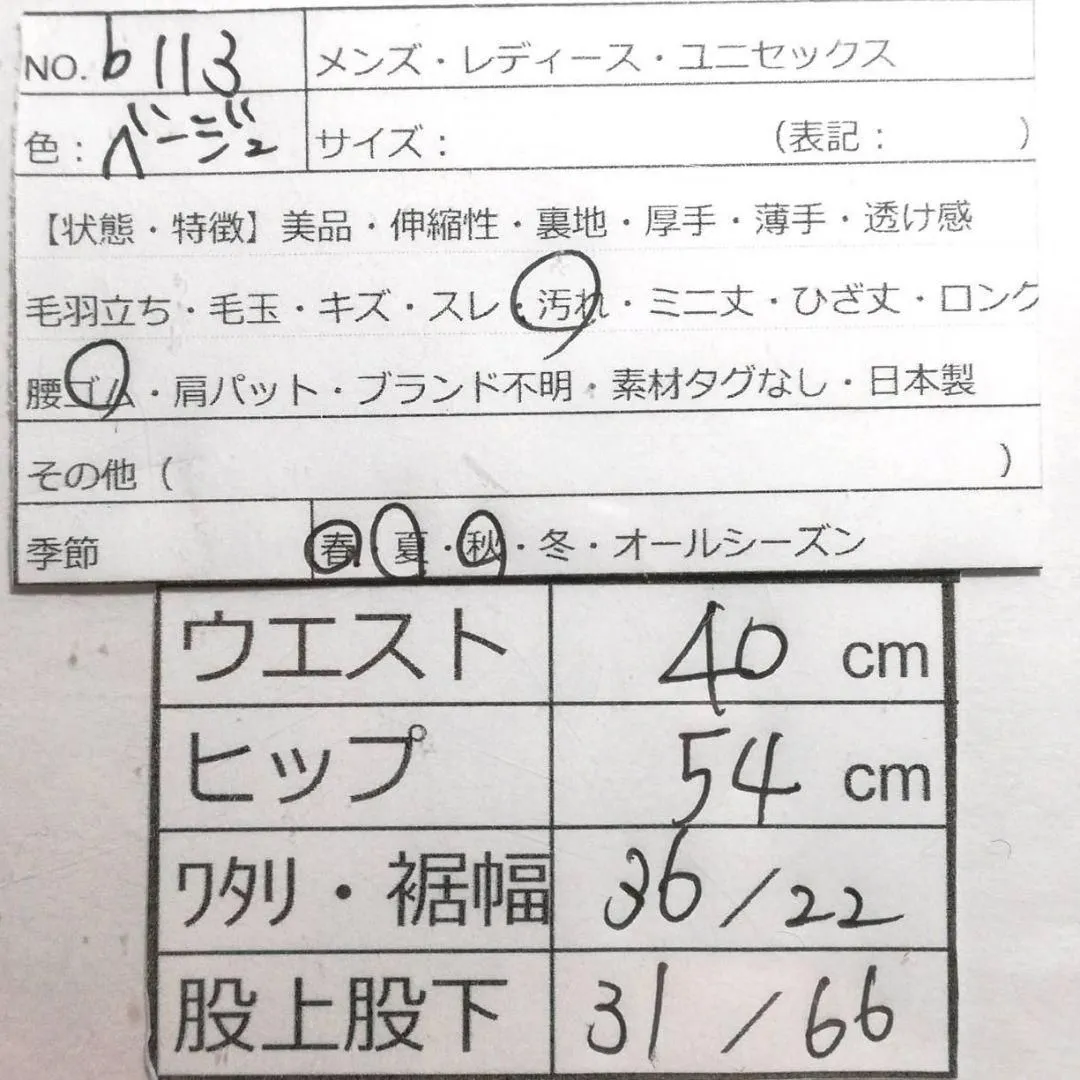 NO. b113 メンズ・レディース・ユニセックス
色: ベージュ サイズ: (表記: )
【状態・特徴】美品・伸縮性・裏地・厚手・薄手・透け感
毛羽立ち・毛玉・キズ・スレ・汚れ・ミニ丈・ひざ丈・ロング
腰ゴム・肩パット・ブランド不明・素材タグなし・日本製
その他( )
季節 春・夏・秋・冬・オールシーズン
ウエスト 40 cm
ヒップ 54 cm
ワタリ・裾幅 36/22
股上股下 31/66